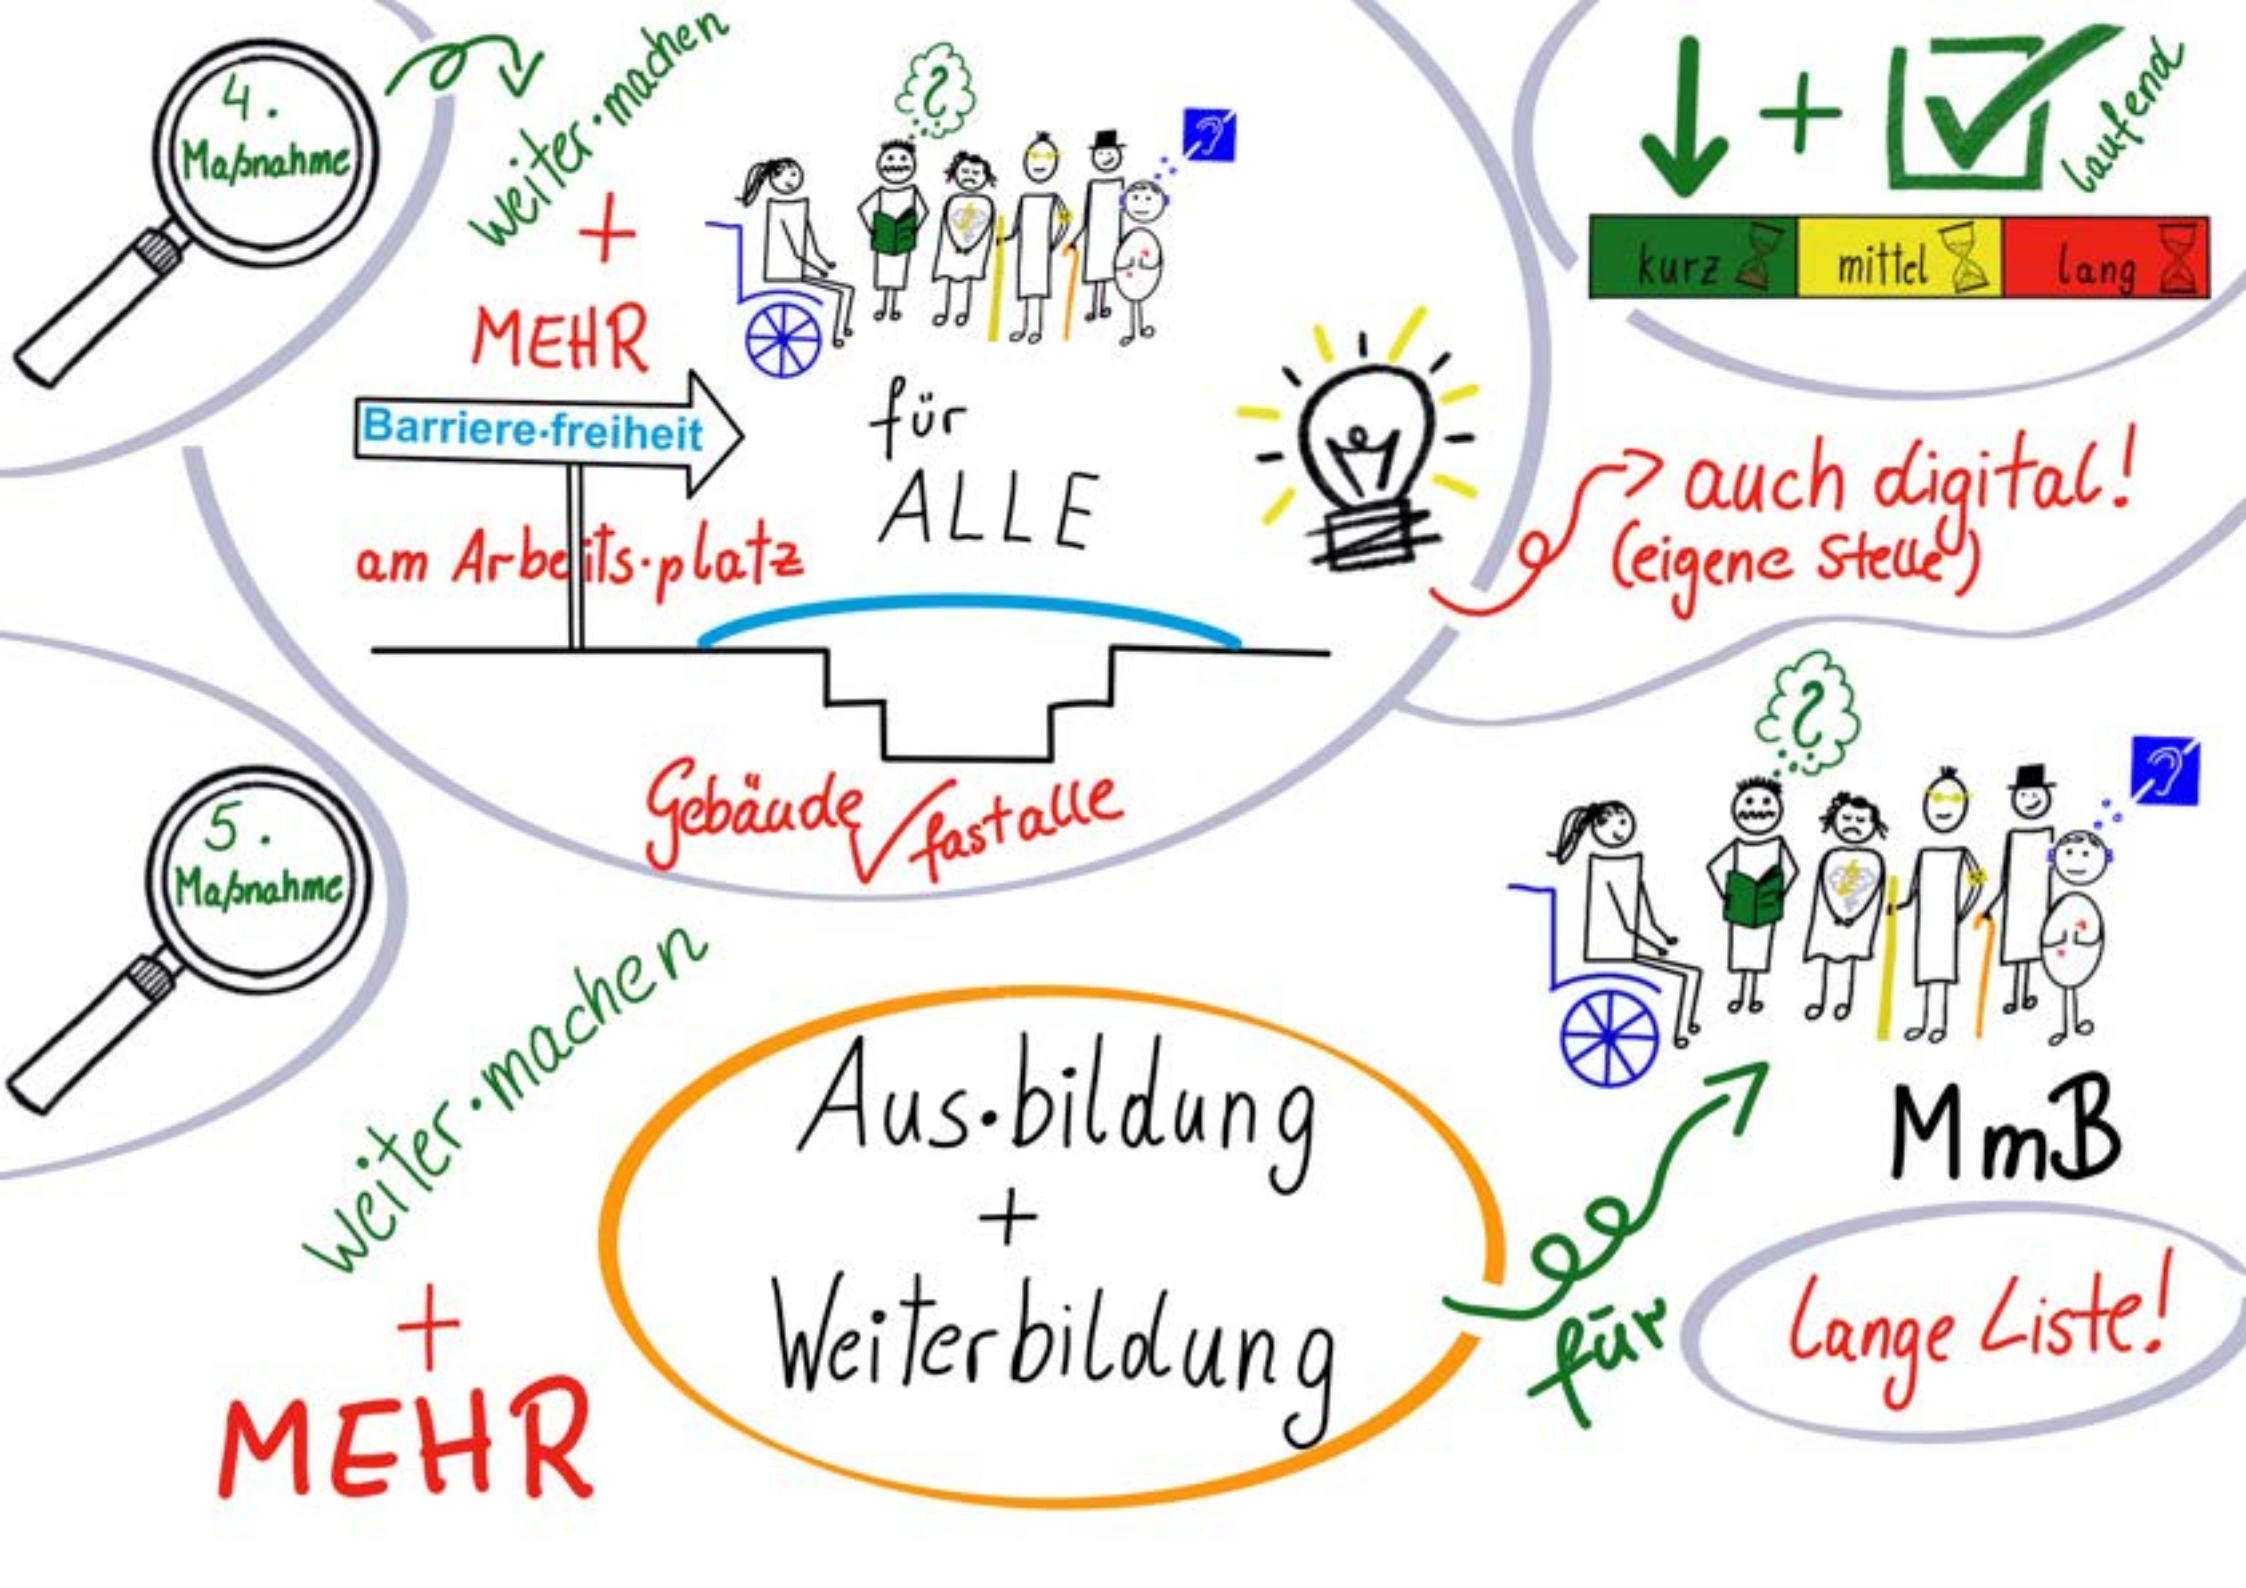 4.
Maßnahme
weiter·machen
+
MEHR
Barriere-freiheit
am Arbeits·platz
für
ALLE
Gebäude fast alle
?
+
laufend
kurz mittel lang
auch digital!
(eigene Stelle)
5.
Maßnahme
weiter·machen
+
MEHR
Aus·bildung
+
Weiterbildung
für
?
MmB
Lange Liste!